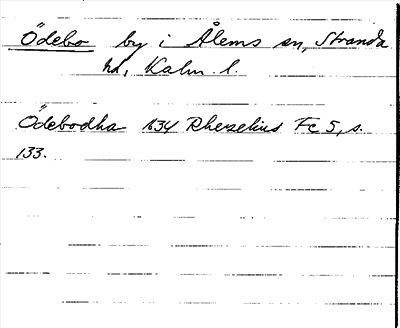 Ödebo by i Ålems sn, Stranda
hd, Kalm. l.
Ödebodha 1634 Rhezelius Fc 5, s.
133.